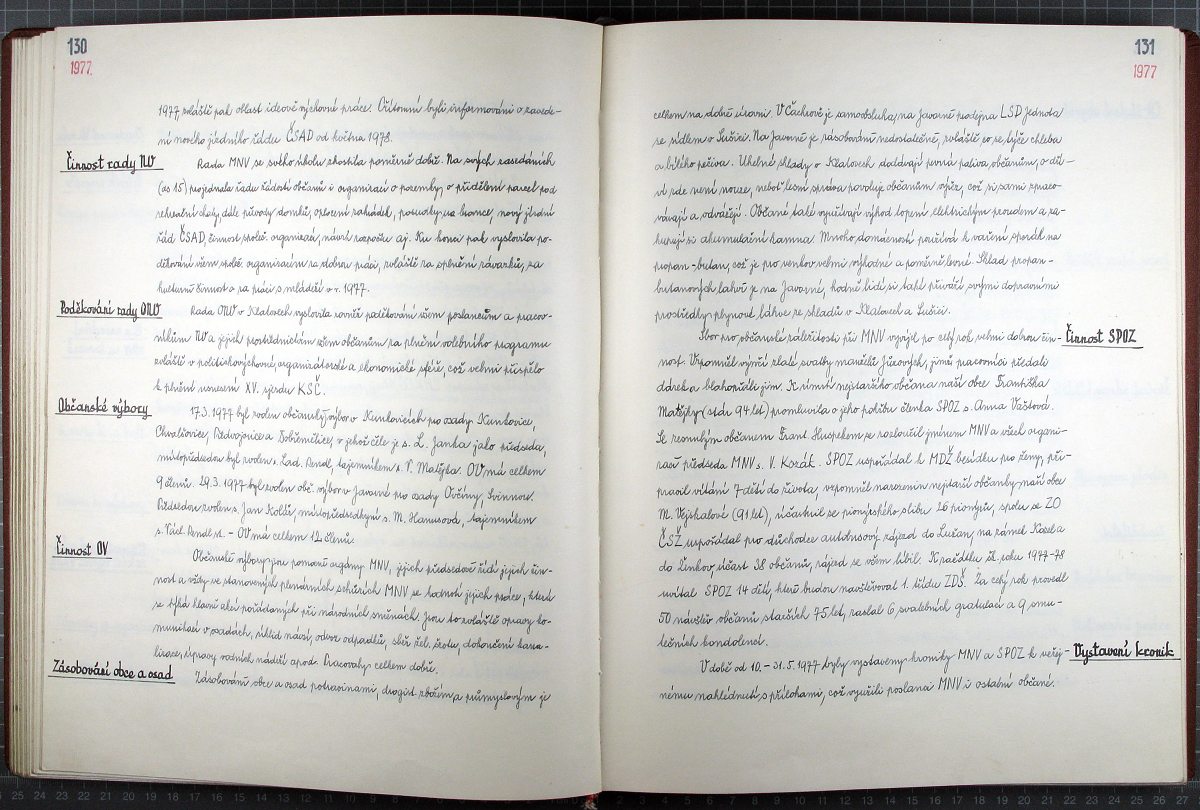 130
1977.
1977, zvláště pak oblast ideově výchovné práce. Přítomní byli informováni o zavede-
ní nového jízdního řádu ČSAD od května 1978.
Činnost rady NV
Rada MNV se svého úkolu zhostila poměrně dobře. Na svých zasedáních
(as 15) projednala řadu žádostí občanů i organizací o pozemky, o přidělení parcel pod
rekreační chaty, dále převody domků, oplocení zahrádek, posudky na brance, nový jízdní
řád ČSAD, činnost společ. organizací, návrh rozpočtu aj. Ku konci pak vyslovila po-
děkování všem společ. organizacím za dobrou práci, zvláště za splnění závazků, za
kulturní činnost a za práci s mládeží v r. 1977.
Poděkování rady ONV
Rada ONV v Klatovech vyslovila rovněž poděkování všem poslancům a pracov-
níkům NV a jejich prostřednictvím všem občanům za plnění volebního programu
zvláště v politickovýchovné, organizátorské a ekonomické sféře, což velmi přispělo
k plnění usnesení XV. sjezdu KSČ.
Občanské výbory
17.3.1977 byl zvolen občanský výbor v Kunkovicích pro osady Kunkovice,
Chvalšovice, Předvojovice a Dobřemělice, v jehož čele je s. L. Janka jako předseda,
místopředsedou byl zvolen s. Lad. Rendl, tajemníkem s. V. Matějka. OV má celkem
9 členů. 29.3.1977 byl zvolen obč. výbor v Javorné pro osady Ovčiny, Svinnou.
Předsedou zvolen s. Jan Kolář, místopředsedkyní s. M. Hanusová, tajemníkem
s. Václ. Rendl st. - OV má celkem 12 členů.
Činnost OV
Občanské výbory jsou pomocné orgány MNV, jejich předsedové řídí jejich čin-
nost a vždy ve stanovených plenárních schůzích MNV se hodnotí jejich práce, která
se týká hlavně akcí pořádaných při národních směnách. Jsou to zvláště opravy ko-
munikací v osadách, úklid návsí, odvoz odpadků, sběr žel. šrotu, dokončení kana-
lizace, úpravy vodních nádrží apod. Pracovaly celkem dobře.
Zásobování obce a osad
Zásobování obce a osad potravinami, drogist. zbožím a průmyslovým je
131
1977
celkem na dobré úrovni. V Čachrově je samoobsluha, na Javorné prodejna LSD Jednota
se sídlem v Sušici. Na Javorné je zásobování nedostatečné, zvláště co se týče chleba
a bílého pečiva. Uhelné sklady v Klatovech dodávají pevná paliva občanům, o dří-
ví zde není nouze, neboť lesní správa povoluje občanům výřez, což si sami zpraco-
vávají a odvážejí. Občané také využívají výhod topení elektrickým proudem a za-
kupují si akumulační kamna. Mnoho domácností používá k vaření sporák na
propan-butan, což je pro venkov velmi výhodné a poměrně levné. Sklad propan-
butanových lahví je na Javorné, hodně lidí si také přiváží svými dopravními
prostředky plynové láhve ze skladů v Klatovech a Sušici.
Činnost SPOZ
Sbor pro občanské záležitosti při MNV vyvíjel po celý rok velmi dobrou čin-
nost. Vzpomněl výročí zlaté svatby manželů Jůzových, jimž pracovníci předali
dárek a blahopřáli jim. K úmrtí nejstaršího občana naší obce Františka
Matějky (stár 94 let) promluvila o jeho pohřbu členka SPOZ s. Anna Vaštová.
Se zesnulým občanem Frant. Huspekem se rozloučil jménem MNV a všech organi-
zací předseda MNV s. V. Kozák. SPOZ uspořádal k MDŽ besídku pro ženy, při-
pravil vítání 7 dětí do života, vzpomněl narozenin nejstarší občanky naší obce
M. Vejskalové (91 let), účastnil se pionýrského slibu 26 pionýrů, spolu se ZO
ČSŽ uspořádal pro důchodce autobusový zájezd do Lužan, na zámek Kozel a
do Línkov, účast 38 občanů, zájezd se všem líbil. K začátku šk. roku 1977-78
uvítal SPOZ 14 dětí, které budou navštěvovat 1. třídu ZDŠ. Za celý rok provedl
50 návštěv občanů starších 75 let, zaslal 6 svatebních gratulací a 9 smu-
tečních kondolencí.
Vystavení kronik
V době od 10. - 31.5.1977 byly vystaveny kroniky MNV a SPOZ k veřej-
nému nahlédnutí s přílohami, což využili poslanci MNV i ostatní občané.